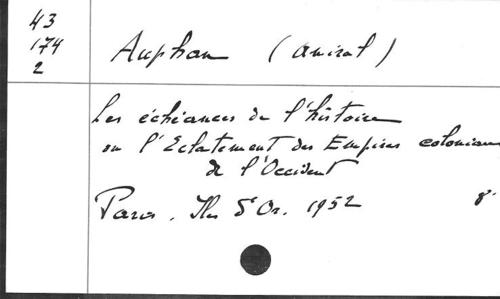 43
174
2
Auphan (amiral)
Les échéances de l'histoire
ou l'Eclatement des Empires coloniaux
de l'Occident
Paris. Iles d'Or. 1952 8°